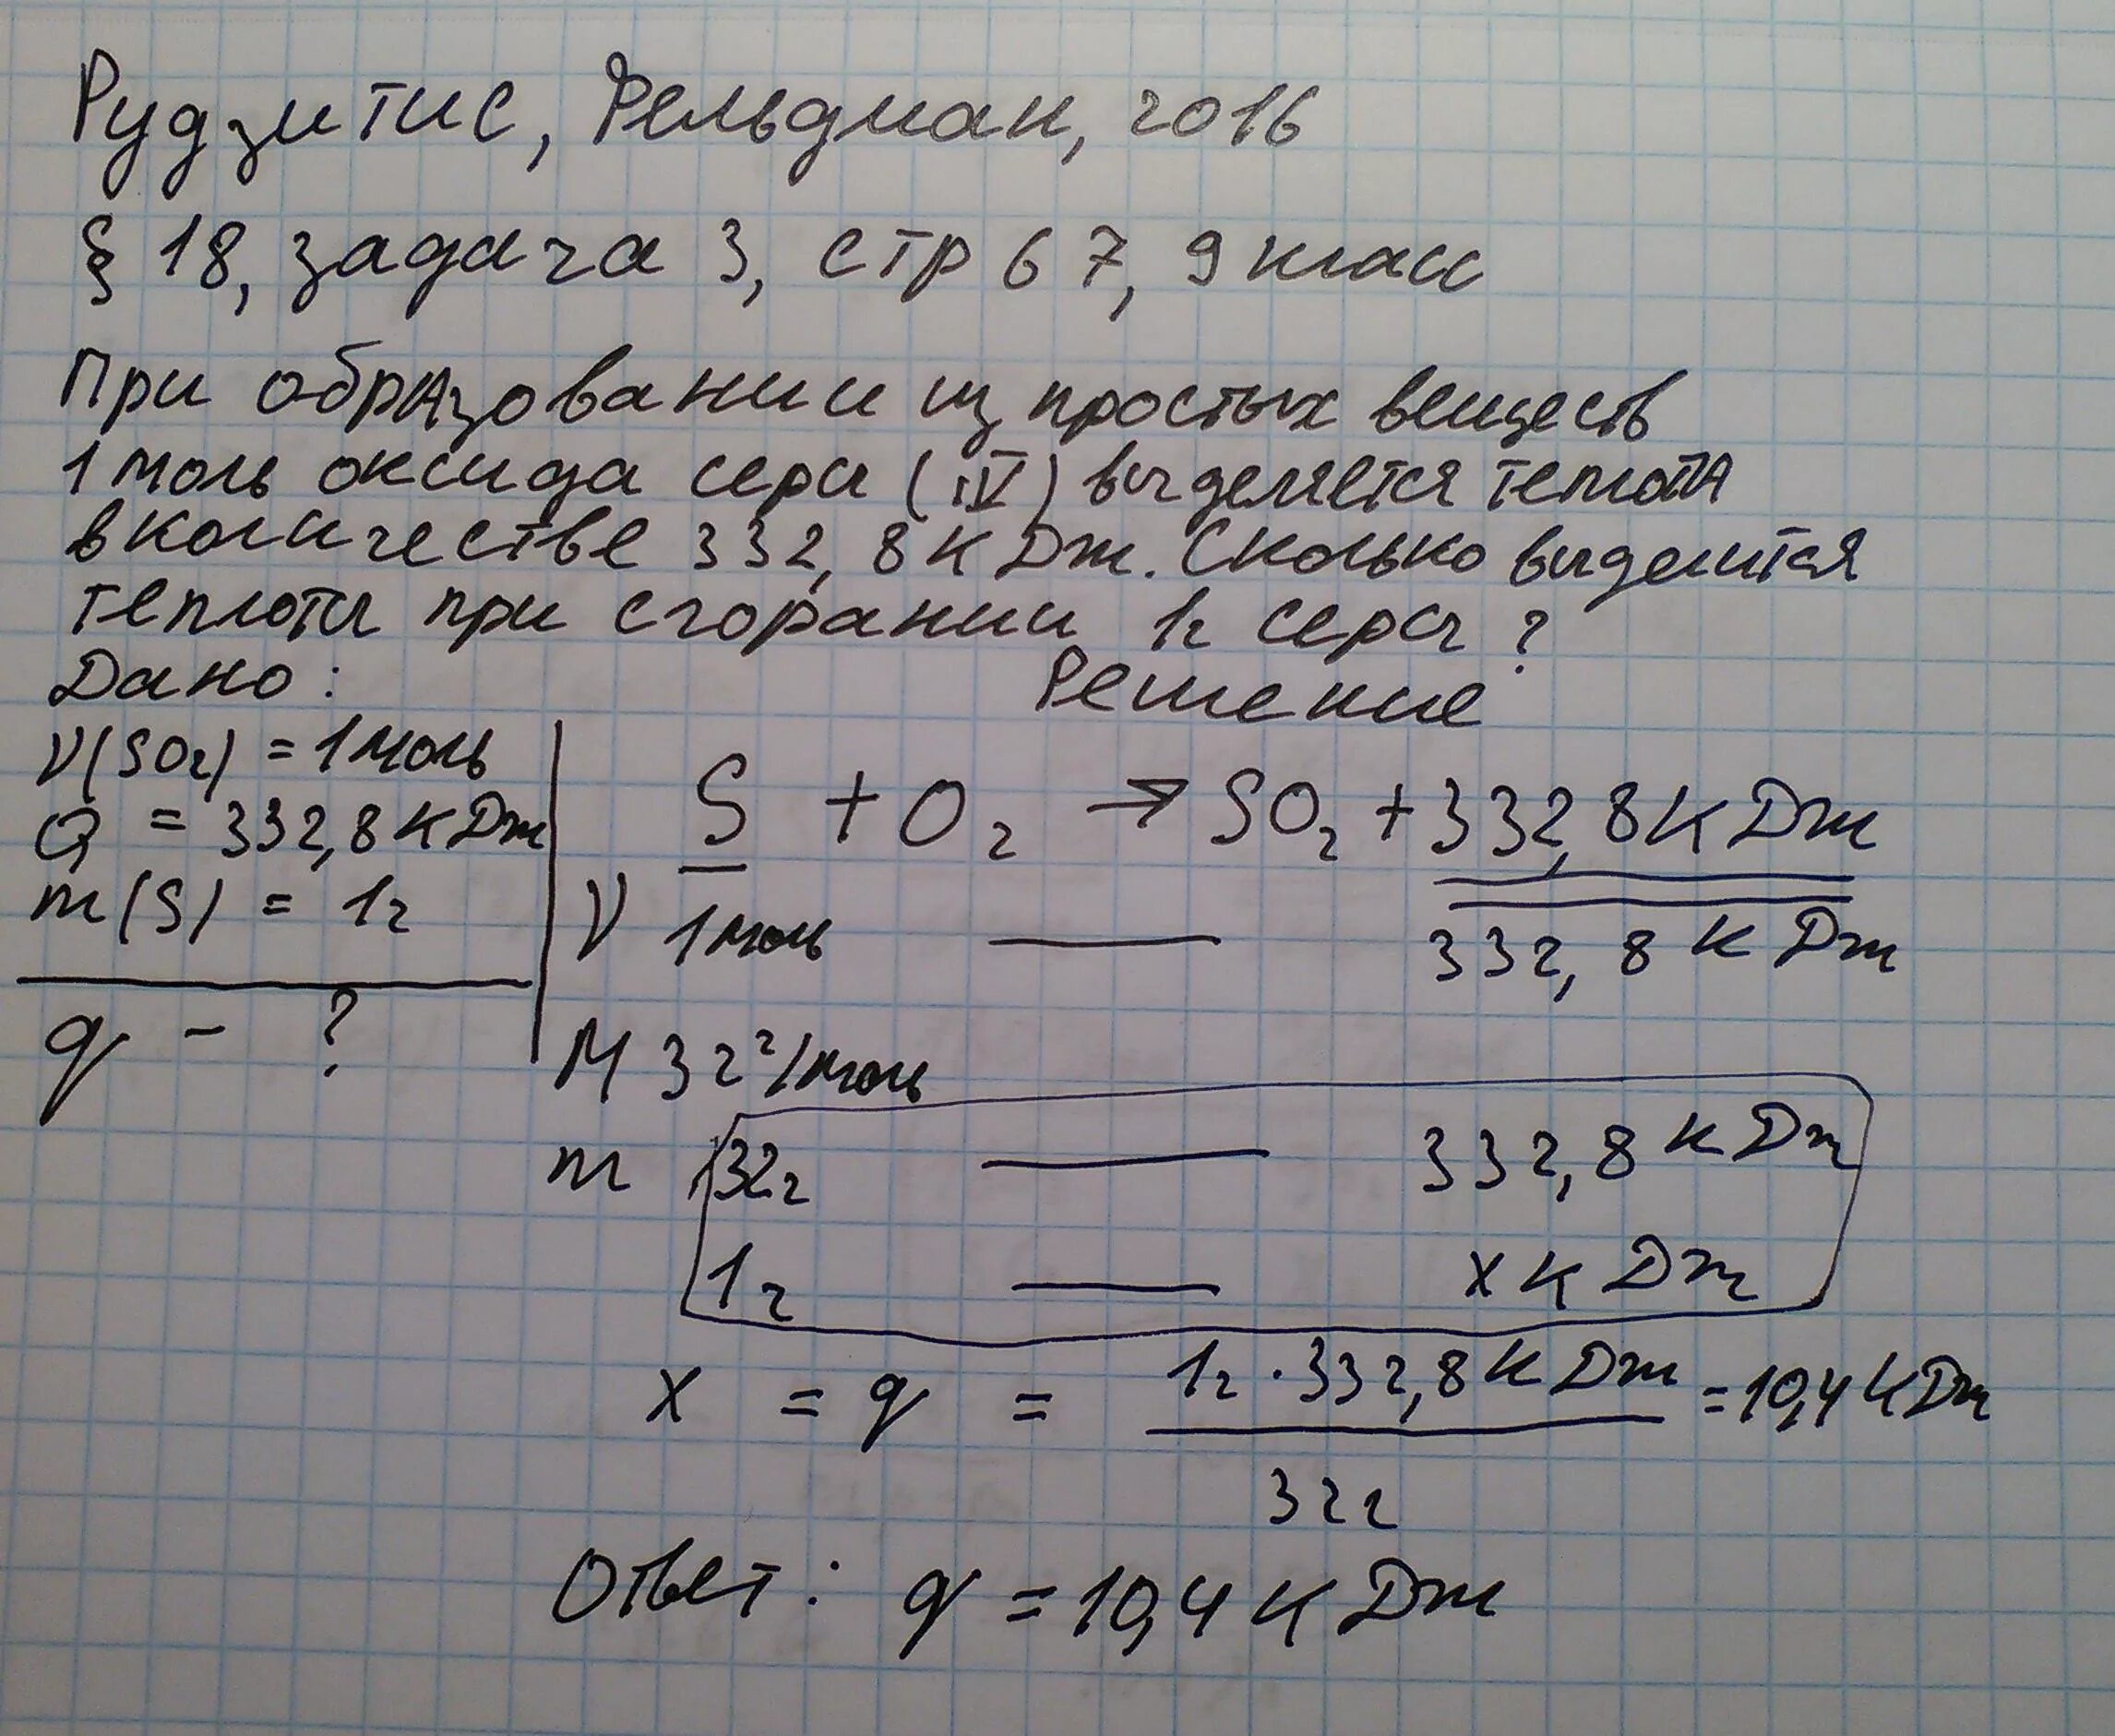 Рудзитис, Фельдман, 2016
§ 18, задача 3, стр 67, 9 класс
При образовании из простых веществ
1 моль оксида серы (IV) выделяется теплота
в количестве 332,8 кДж. Сколько выделится
теплоты при сгорании 1г серы?
Дано:
Решение
ν(SO₂) = 1 моль
Q = 332,8 кДж
m(S) = 1г
q - ?
S + O₂ → SO₂ + 332,8 кДж
ν 1 моль — 332,8 кДж
M 32 г/моль
m 32г — 332,8 кДж
1г — x кДж
x = q = 1г · 332,8 кДж / 32г = 10,4 кДж
Ответ: q = 10,4 кДж